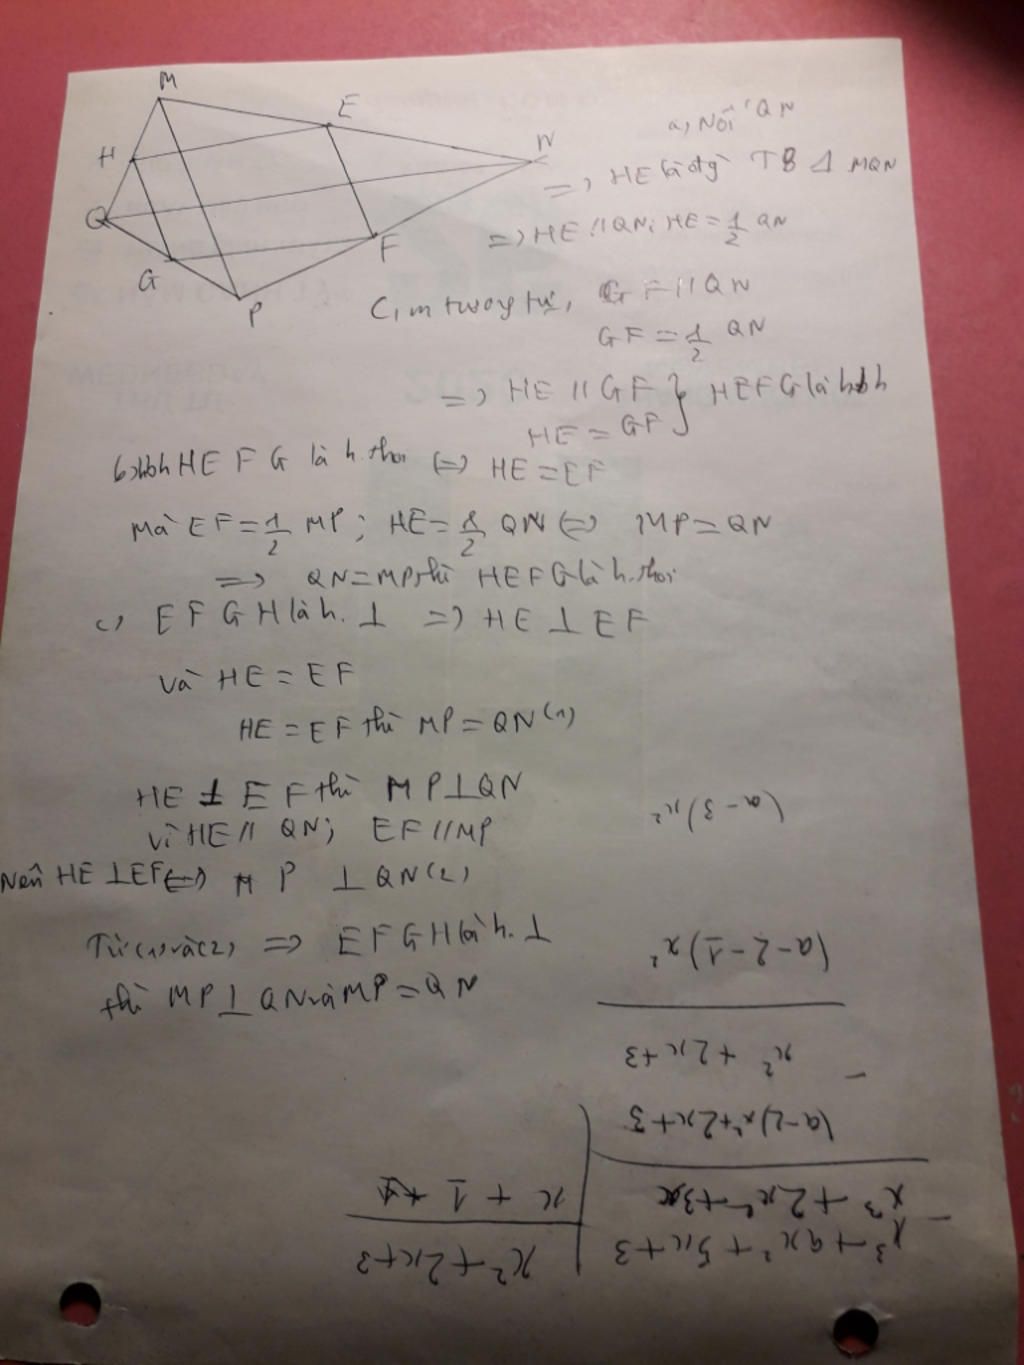 M
E
N
H
Q
G
F
P
a, Nối QN
=> HE là đg TB Δ MQN
=> HE // QN; HE = 1/2 QN
C/m tương tự, GF // QN
GF = 1/2 QN
=> HE // GF } HEFG là hbh
HE = GF
b, hbh HEFG là h.thoi <=> HE = EF
Mà EF = 1/2 MP; HE = 1/2 QN <=> MP = QN
=> QN = MP thì HEFG là h.thoi
c, EFGH là h. ⊥ => HE ⊥ EF
và HE = EF
HE = EF thì MP = QN (1)
HE ⊥ EF thì MP ⊥ QN
vì HE // QN; EF // MP
Nên HE ⊥ EF <=> MP ⊥ QN (2)
Từ (1) và (2) => EFGH là h. ⊥
thì MP ⊥ QN và MP = QN
x³ + ax² + 5x + 3 | x² + 2x + 3
- x³ + 2x² + 3x | x + 1
(a-2)x² + 2x + 3
- x² + 2x + 3
(a-2-1)x²
(a-3)x²